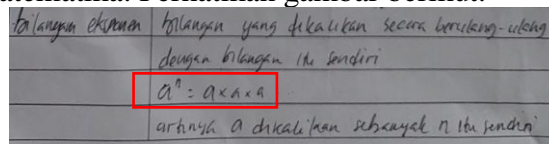 matematika. Perhatikan gambar berikut.
bilangan eksponen bilangan yang dikalikan secara berulang-ulang
dengan bilangan itu sendiri
aⁿ = a x a x a
artinya a dikalikan sebanyak n itu sendiri